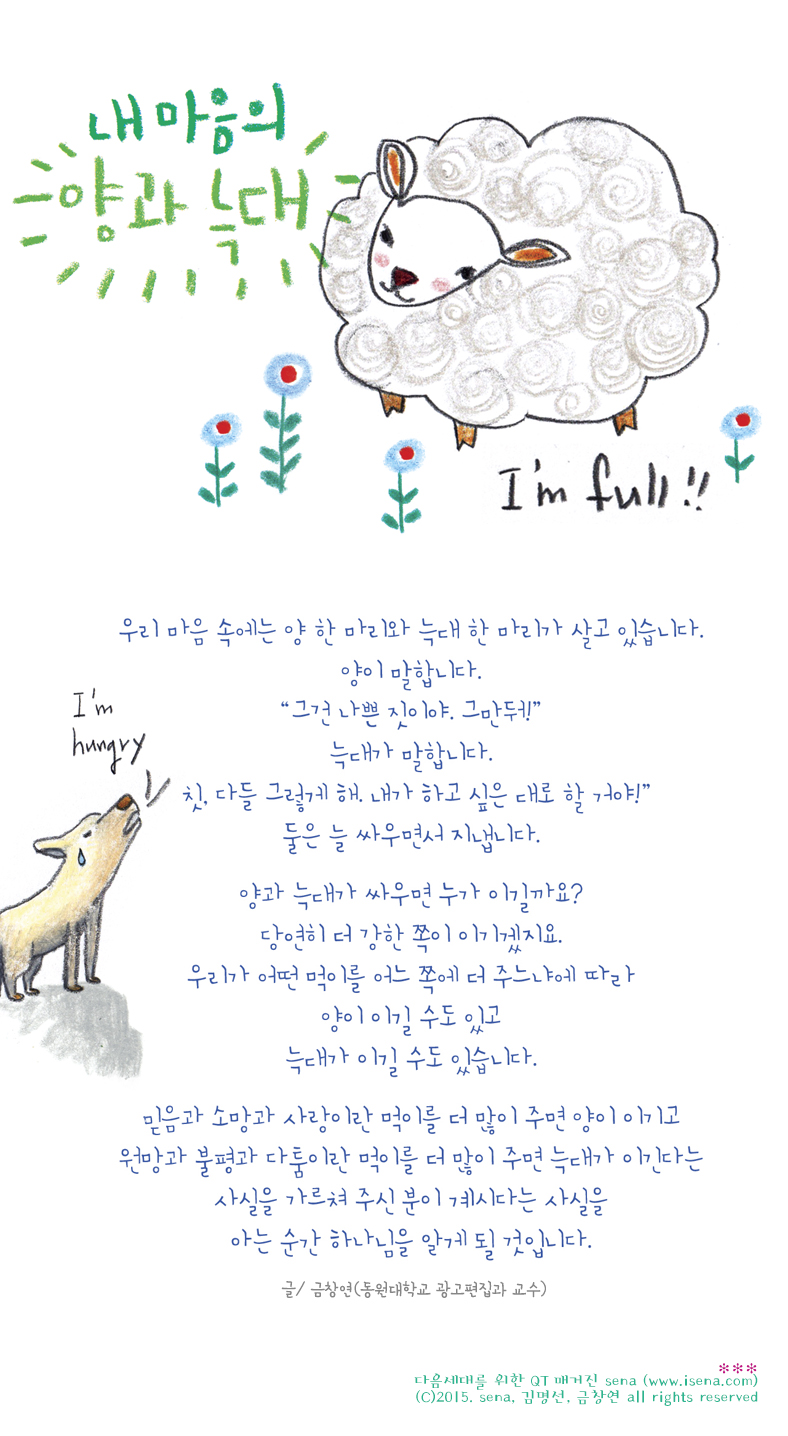 내 마음의
양과 늑대
I'm full!!
우리 마음 속에는 양 한 마리와 늑대 한 마리가 살고 있습니다.
양이 말합니다.
“그건 나쁜 짓이야. 그만둬!”
늑대가 말합니다.
I'm
hungry
칫, 다들 그렇게 해. 내가 하고 싶은 대로 할 거야!”
둘은 늘 싸우면서 지냅니다.
양과 늑대가 싸우면 누가 이길까요?
당연히 더 강한 쪽이 이기겠지요.
우리가 어떤 먹이를 어느 쪽에 더 주느냐에 따라
양이 이길 수도 있고
늑대가 이길 수도 있습니다.
믿음과 소망과 사랑이란 먹이를 더 많이 주면 양이 이기고
원망과 불평과 다툼이란 먹이를 더 많이 주면 늑대가 이긴다는
사실을 가르쳐 주신 분이 계시다는 사실을
아는 순간 하나님을 알게 될 것입니다.
글/ 금창연(동원대학교 광고편집과 교수)
***
다음세대를 위한 QT 매거진 sena (www.isena.com)
(C)2015. sena, 김명선, 금창연 all rights reserved